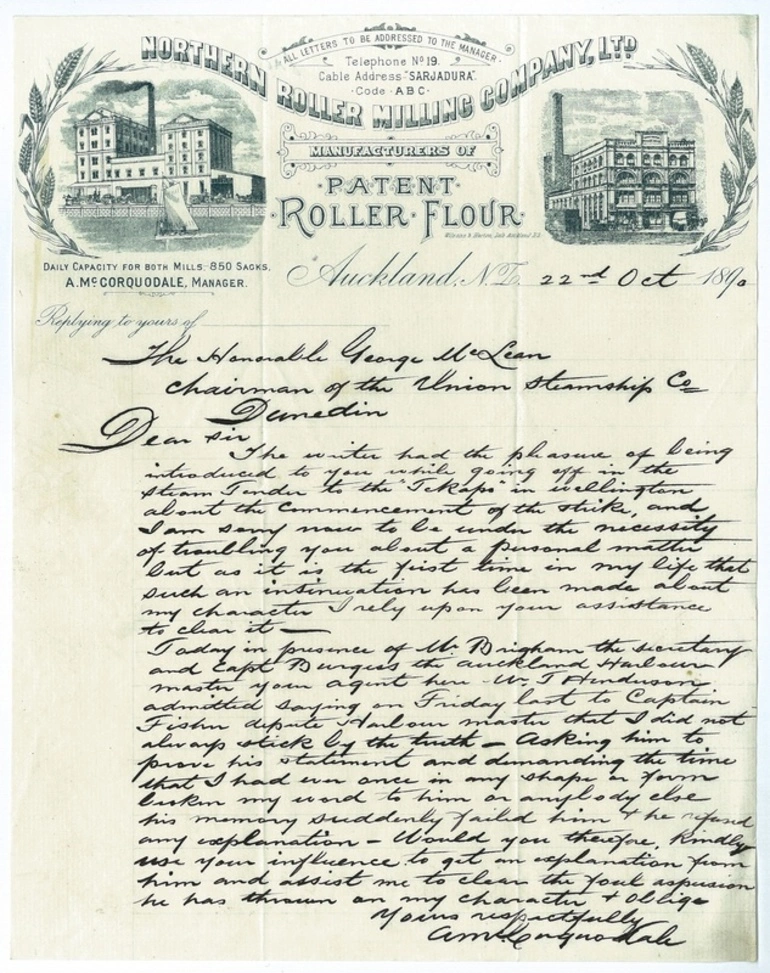 ALL LETTERS TO BE ADDRESSED TO THE MANAGER
NORTHERN ROLLER MILLING COMPANY, LTD
Telephone No 19.
Cable Address "SARJADURA".
Code ABC
MANUFACTURERS OF
PATENT
ROLLER FLOUR
DAILY CAPACITY FOR BOTH MILLS: 850 SACKS.
A. McCORQUODALE, MANAGER.
Auckland, N.Z. 22nd Oct 1890
Replying to yours of
The Honorable George McLean
Chairman of the Union Steamship Co
Dunedin
Dear Sir
The writer had the pleasure of being
introduced to you while going off in the
Steam Tender to the "Tekapo" in wellington
about the commencement of the strike, and
I am sorry now to be under the necessity
of troubling you about a personal matter
but as it is the first time in my life that
such an insinuation has been made about
my character I rely upon your assistance
to clear it —
Today in presence of Mr Brigham the secretary
and Capt Burgess the Auckland Harbour
master your agent here Mr. T Henderson
admitted saying on Friday last to Captain
Fisher depute Harbour master that I did not
always stick by the truth — Asking him to
prove his statement and demanding the time
that I had ever once in any shape or form
broken my word to him or anybody else
his memory suddenly failed him & he refused
any explanation — Would you therefore, kindly
use your influence to get an explanation from
him and assist me to clear the foul aspersion
he has thrown on my character & oblige
Yours respectfully
A McCorquodale